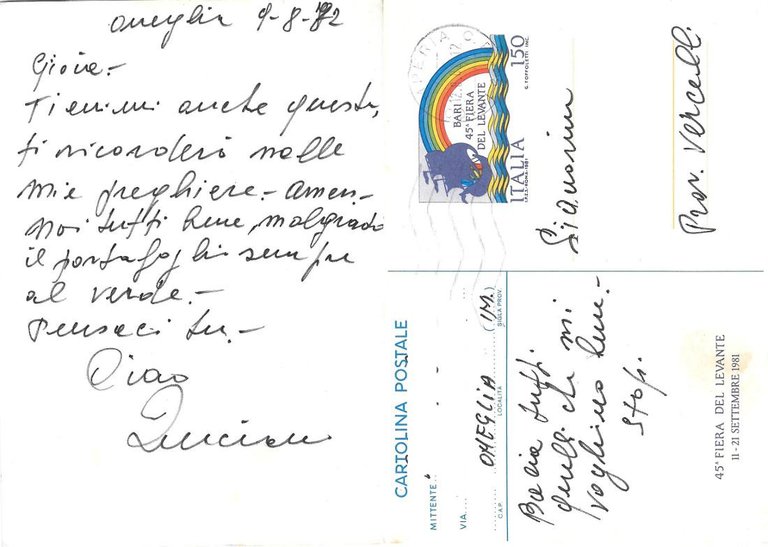 oneglia 9-8-82
Gioia.-
Tienimi anche questa,
ti ricorderò nelle
mie preghiere.- amen.-
noi tutti bene, malgrado
il portafoglio sempre
al verde.-
Pensaci tu.-
Ciao
BARI
45ª FIERA
DEL LEVANTE
ITALIA 150
I.P.Z.S.-ROMA-1981
G. TOFFOLETTI INC.
Prov. Vercelli
CARTOLINA POSTALE
MITTENTE:
VIA
ONEGLIA (IM.)
C.A.P. LOCALITÀ SIGLA PROV.
Bacia tutti
quelli che mi
vogliono bene.-
stop.
45ª FIERA DEL LEVANTE
11 - 21 SETTEMBRE 1981